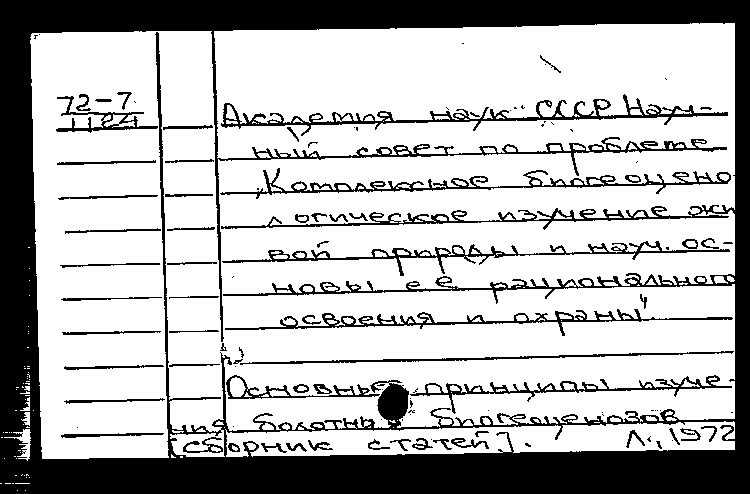 72-7
1124
Академия наук СССР Науч-
ный совет по проблеме
„Комплексное биогеоцено
логическое изучение жи
вой природы и науч. ос-
новы ее рационального
освоения и охраны".
Основные принципы изуче-
ния болотных биогеоценозов
[сборник статей]. Л., 1972